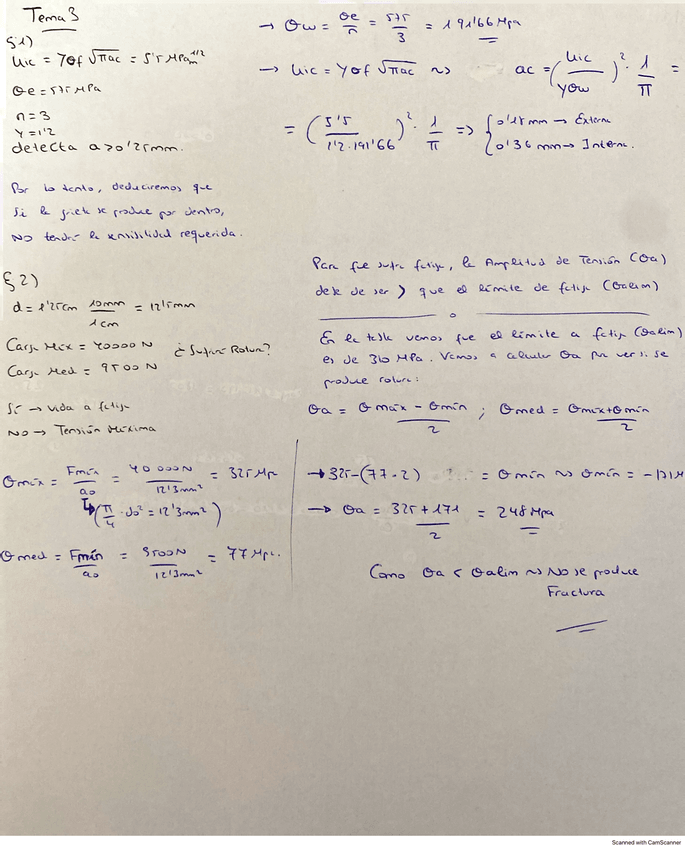 Tema 3
§1)
KIC = Yσf √πac = 5'5 MPa m^1/2
σe = 575 MPa
n = 3
Y = 1'2
detecta a > 0'25mm.
Por lo tanto, deduciremos que
si la grieta se produce por dentro,
NO tendrá la sensibilidad requerida.
→ σw = σe/n = 575/3 = 191'66 Mpa
→ KIC = Yσf √πac ⇝ ac = (KIC/Yσw)² · 1/π =
= (5'5/1'2·191'66)² · 1/π ⇒ { 0'18 mm → Externa
0'36 mm → Interna.
§2)
d = 1'25cm 10mm/1cm = 12'5mm
Carga Máx = 40000 N
¿Sufrirá Rotura?
Carga Med = 9500 N
Sí → vida a fatiga
NO → Tensión Máxima
σmáx = Fmáx/a0 = 40 000N/12'3mm² = 325 Mp
↳ (π/4 · do² = 12'3mm²)
σmed = Fmín/a0 = 9500N/12'3mm² = 77 Mpa.
Para que sufra fatiga, la Amplitud de Tensión (σa)
debe de ser > que el límite de fatiga (σalim)
En la tabla vemos que el límite a fatiga (σalim)
es de 310 MPa. Vamos a calcular σa para ver si se
produce rotura:
σa = σmáx - σmín/2 ; σmed = σmáx+σmín/2
→ 325-(77·2) = σmín ⇝ σmín = -171M
→ σa = 325+171/2 = 248 Mpa
Como σa < σalim ⇝ No se produce
Fractura
Scanned with CamScanner